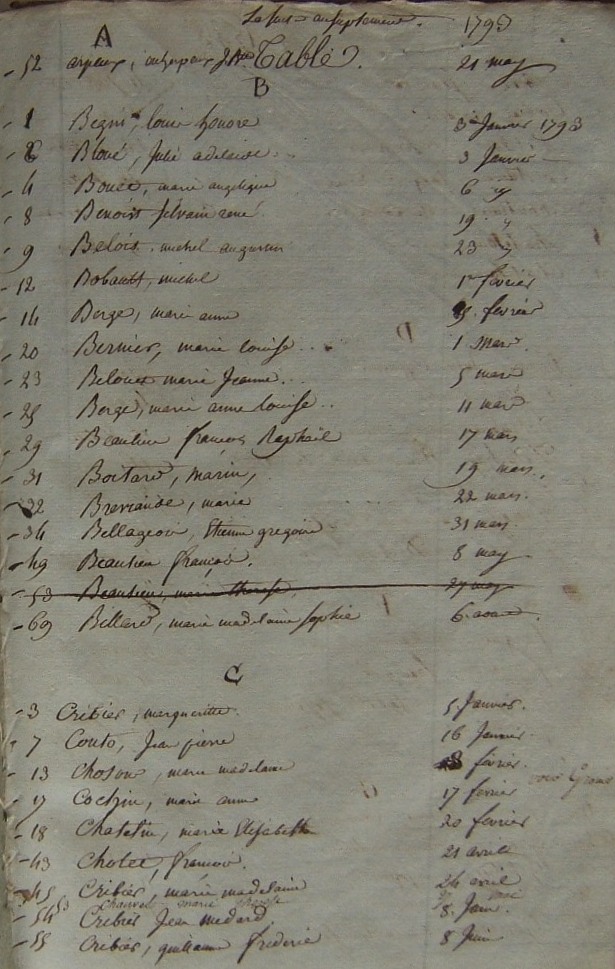 1793
A
- 52 J. Bte Table. 21 may
B
- 1 louis honore 3 Janvier 1793
- 6 Bloué, Julie adelaide.. 3 Janvier
- 4 Bouet, marie angelique 6 "
- 8 Benoist Silvain rené 19 "
- 9 Belois. michel augustin 23 "
- 12 Bobault, michel 1er fevrier
- 14 Berge, marie anne fevrier
- 20 Bernier, marie louise... 1. mars.
- 23 Belouet marie Jeanne... 5 mars
- 25 Berge, marie anne louise.. 11 mars
- 29 Beaulieu françois Raphael 17 mars
- 31 Boitard, marin, 19 mars.
- 32 marie 22 mars.
- 34 Etienne gregoire 31 mars
- 49 Beaulieu françois. 8 may
- 53 Beaulieu, marie therese. 27 may
- 69 Billard, marie madelaine sophie 6. aoust.
C
- 3 Cribier, margueritte. 5. Janvier.
- 7 Couto, Jean pierre 16 Janvier.
- 13 marie madelaine 8 fevrier.
voié
- 17 Cochin, marie anne 17 fevrier
- 18 Chatelin, marie Elisabeth 20 fevrier
- 43 Cholet, françois. 21 avril
- 45 Cribier, marie madelaine 24 avril
53 Chauvet marie therese mai
- 54 Cribier Jean medard. 8. Juin.
- 55 Cribier, guillaume frederic 8 Juin